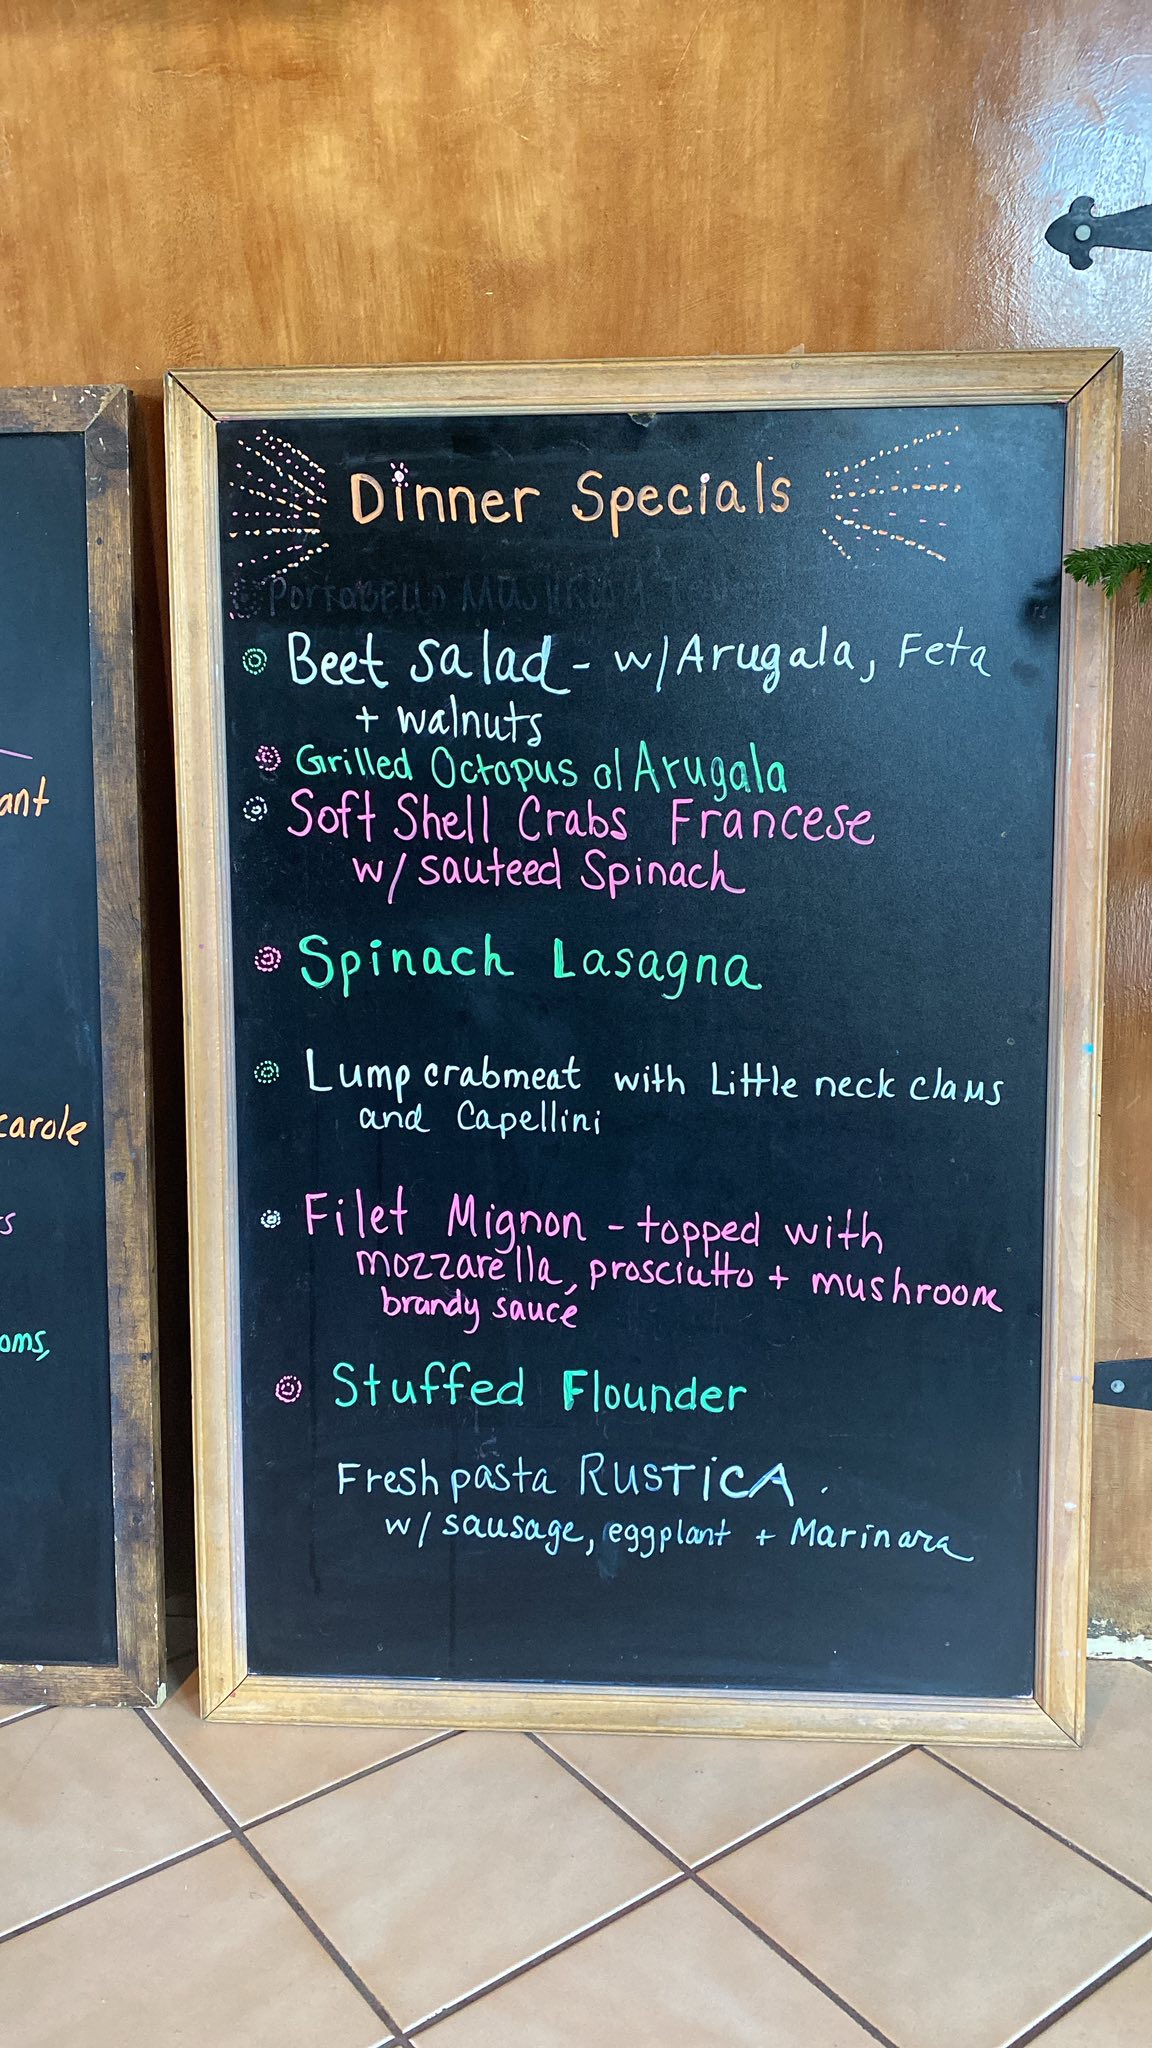 Dinner Specials
Portobello Mushroom
Beet Salad - w/ Arugala, Feta
+ walnuts
Grilled Octopus o/ Arugala
Soft Shell Crabs Francese
w/ sauteed Spinach
Spinach Lasagna
Lump crabmeat with Little neck clams
and Capellini
Filet Mignon - topped with
mozzarella, prosciutto + mushroom
brandy sauce
Stuffed Flounder
Fresh pasta RUSTiCA.
w/ sausage, eggplant + Marinara
ant
carole
s
oms,